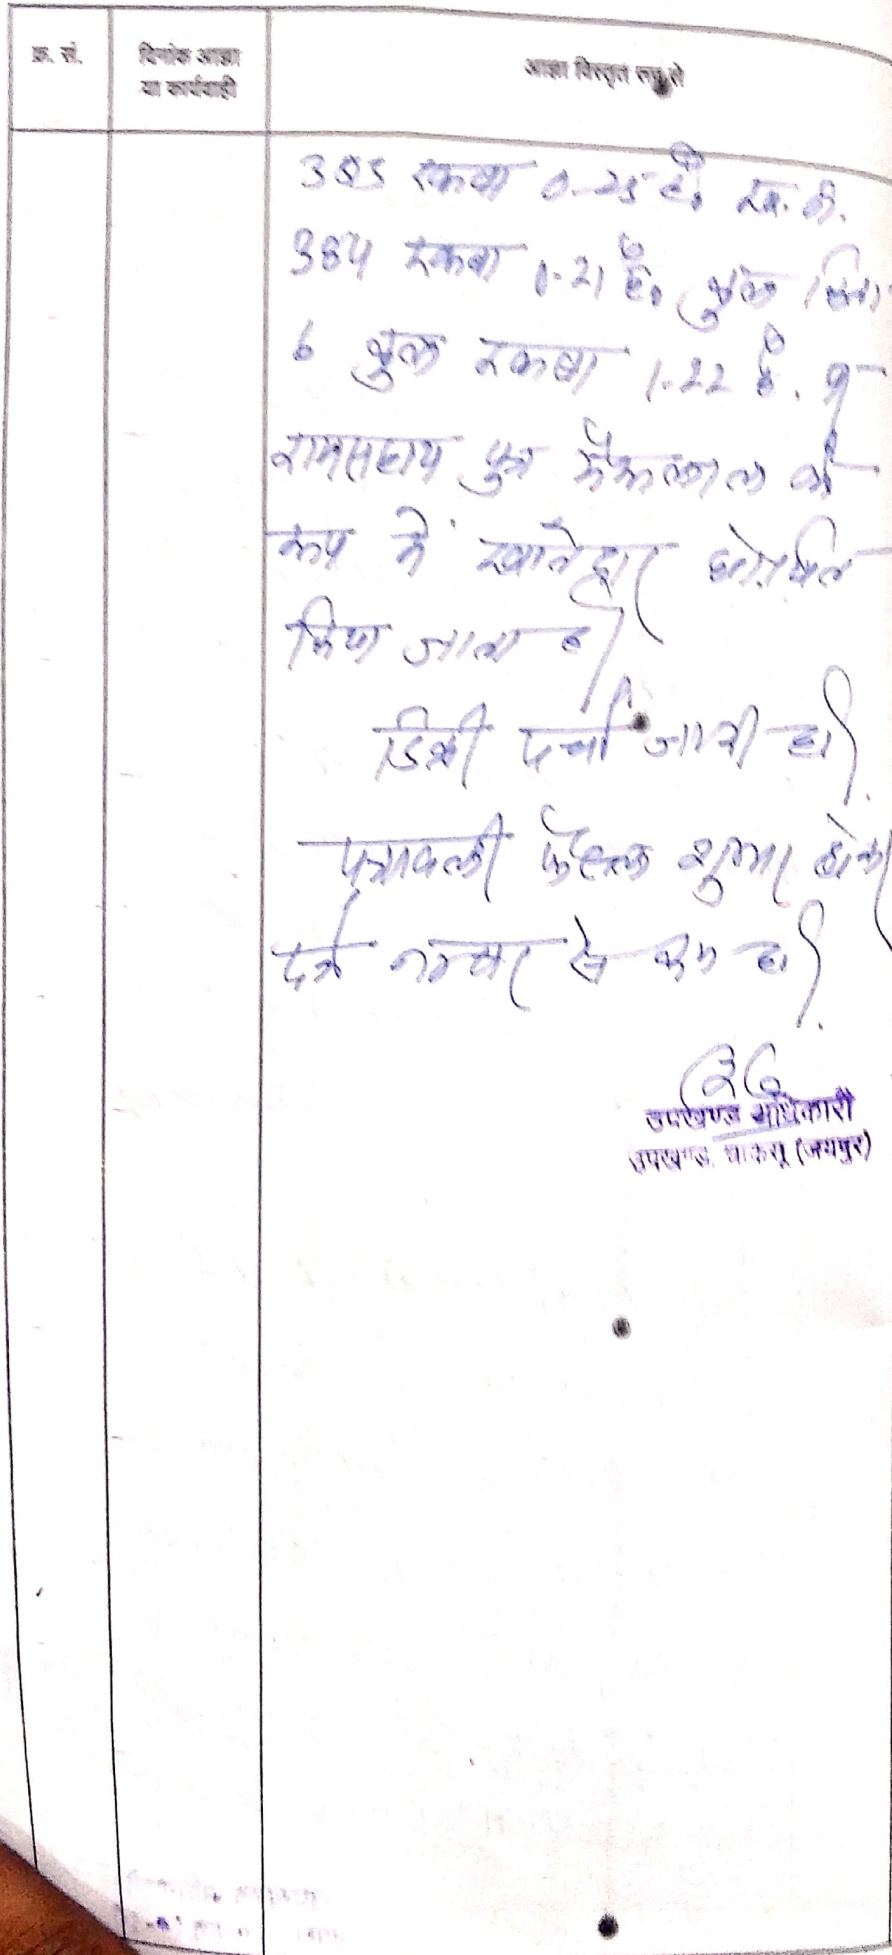 क्र. सं.
दिनांक आज्ञा
या कार्यवाही
आज्ञा विस्तृत रूप से
रकबा 0.25 है. ख. नं.
384 रकबा 0.21 है. कुल किता
6 कुल रकबा 1.22 है. का
रामसहाय पुत्र के
रूप में खातेदार घोषित
किया जाता है।
डिक्री पर्चा जारी हो।
पत्रावली फैसल शुमार होकर
दर्ज नम्बर से कम हो।
उपखण्ड अधिकारी
उपखण्ड, चाकसू (जयपुर)